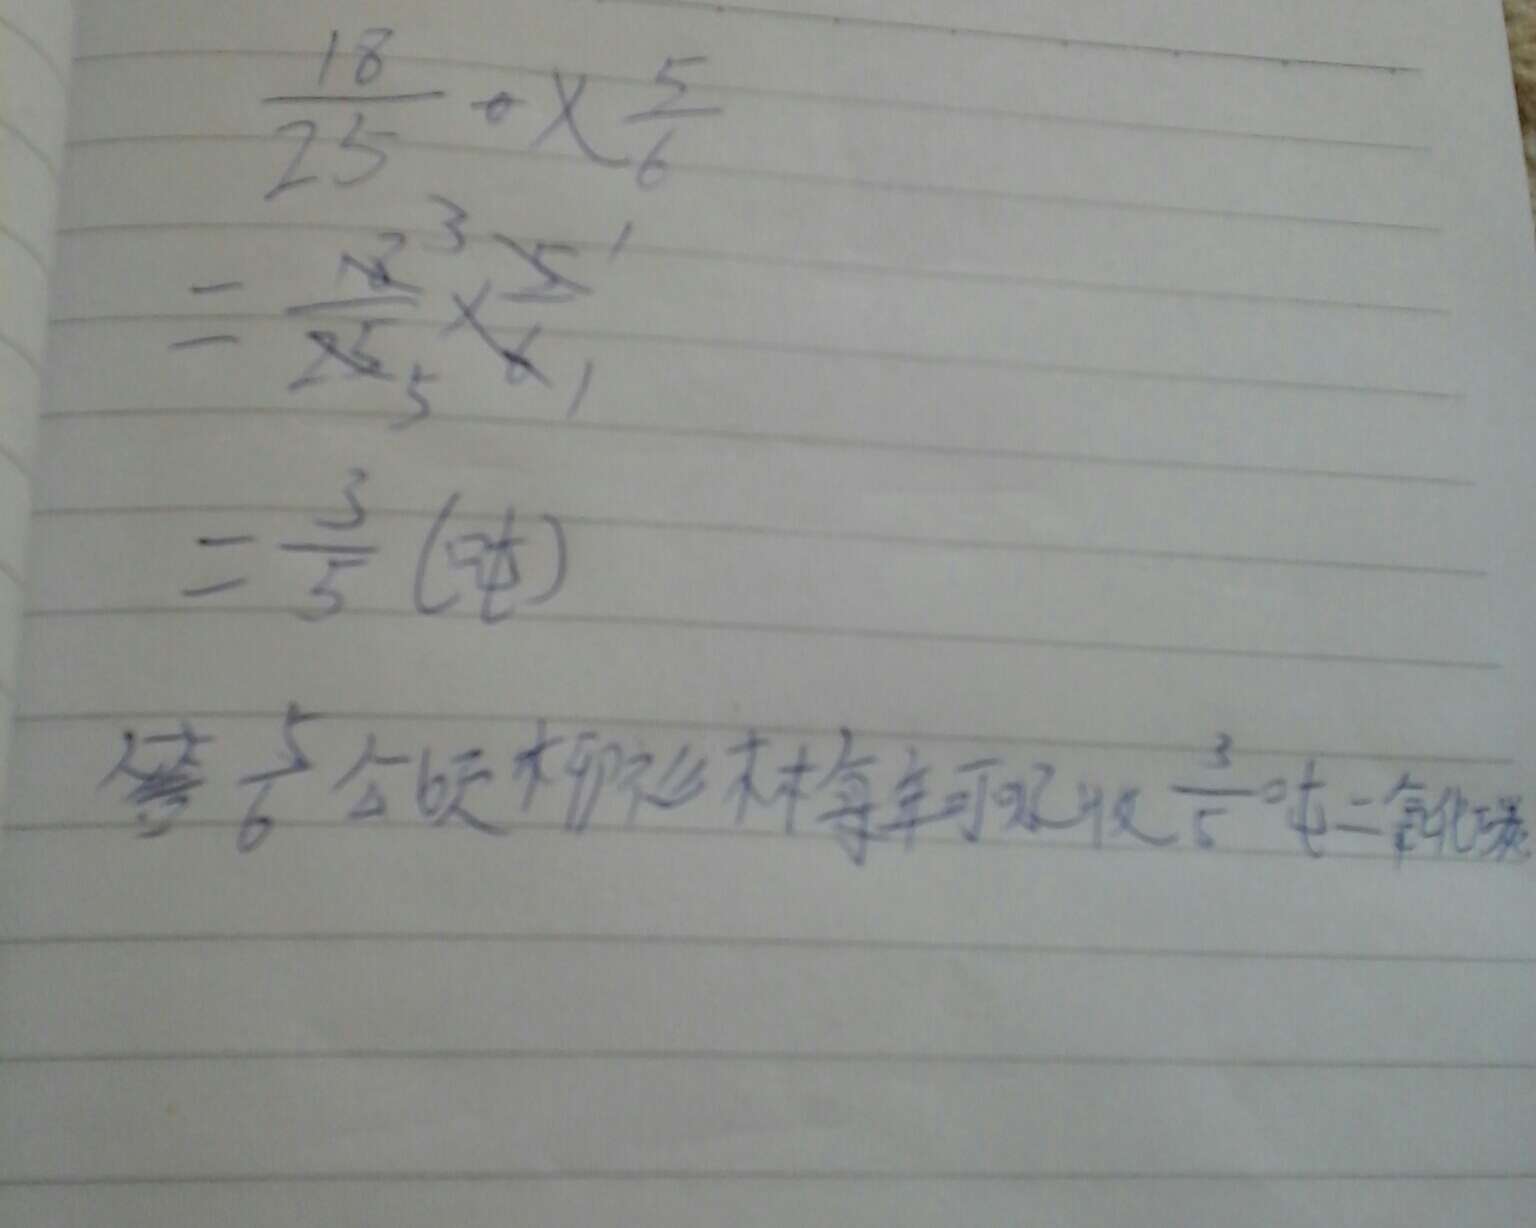 18/25 × 5/6
= 18/25 3 5 × 5/6 1 1
= 3/5 (吨)
答 5/6 公顷柳杉林每年可吸收 3/5 吨二氧化碳